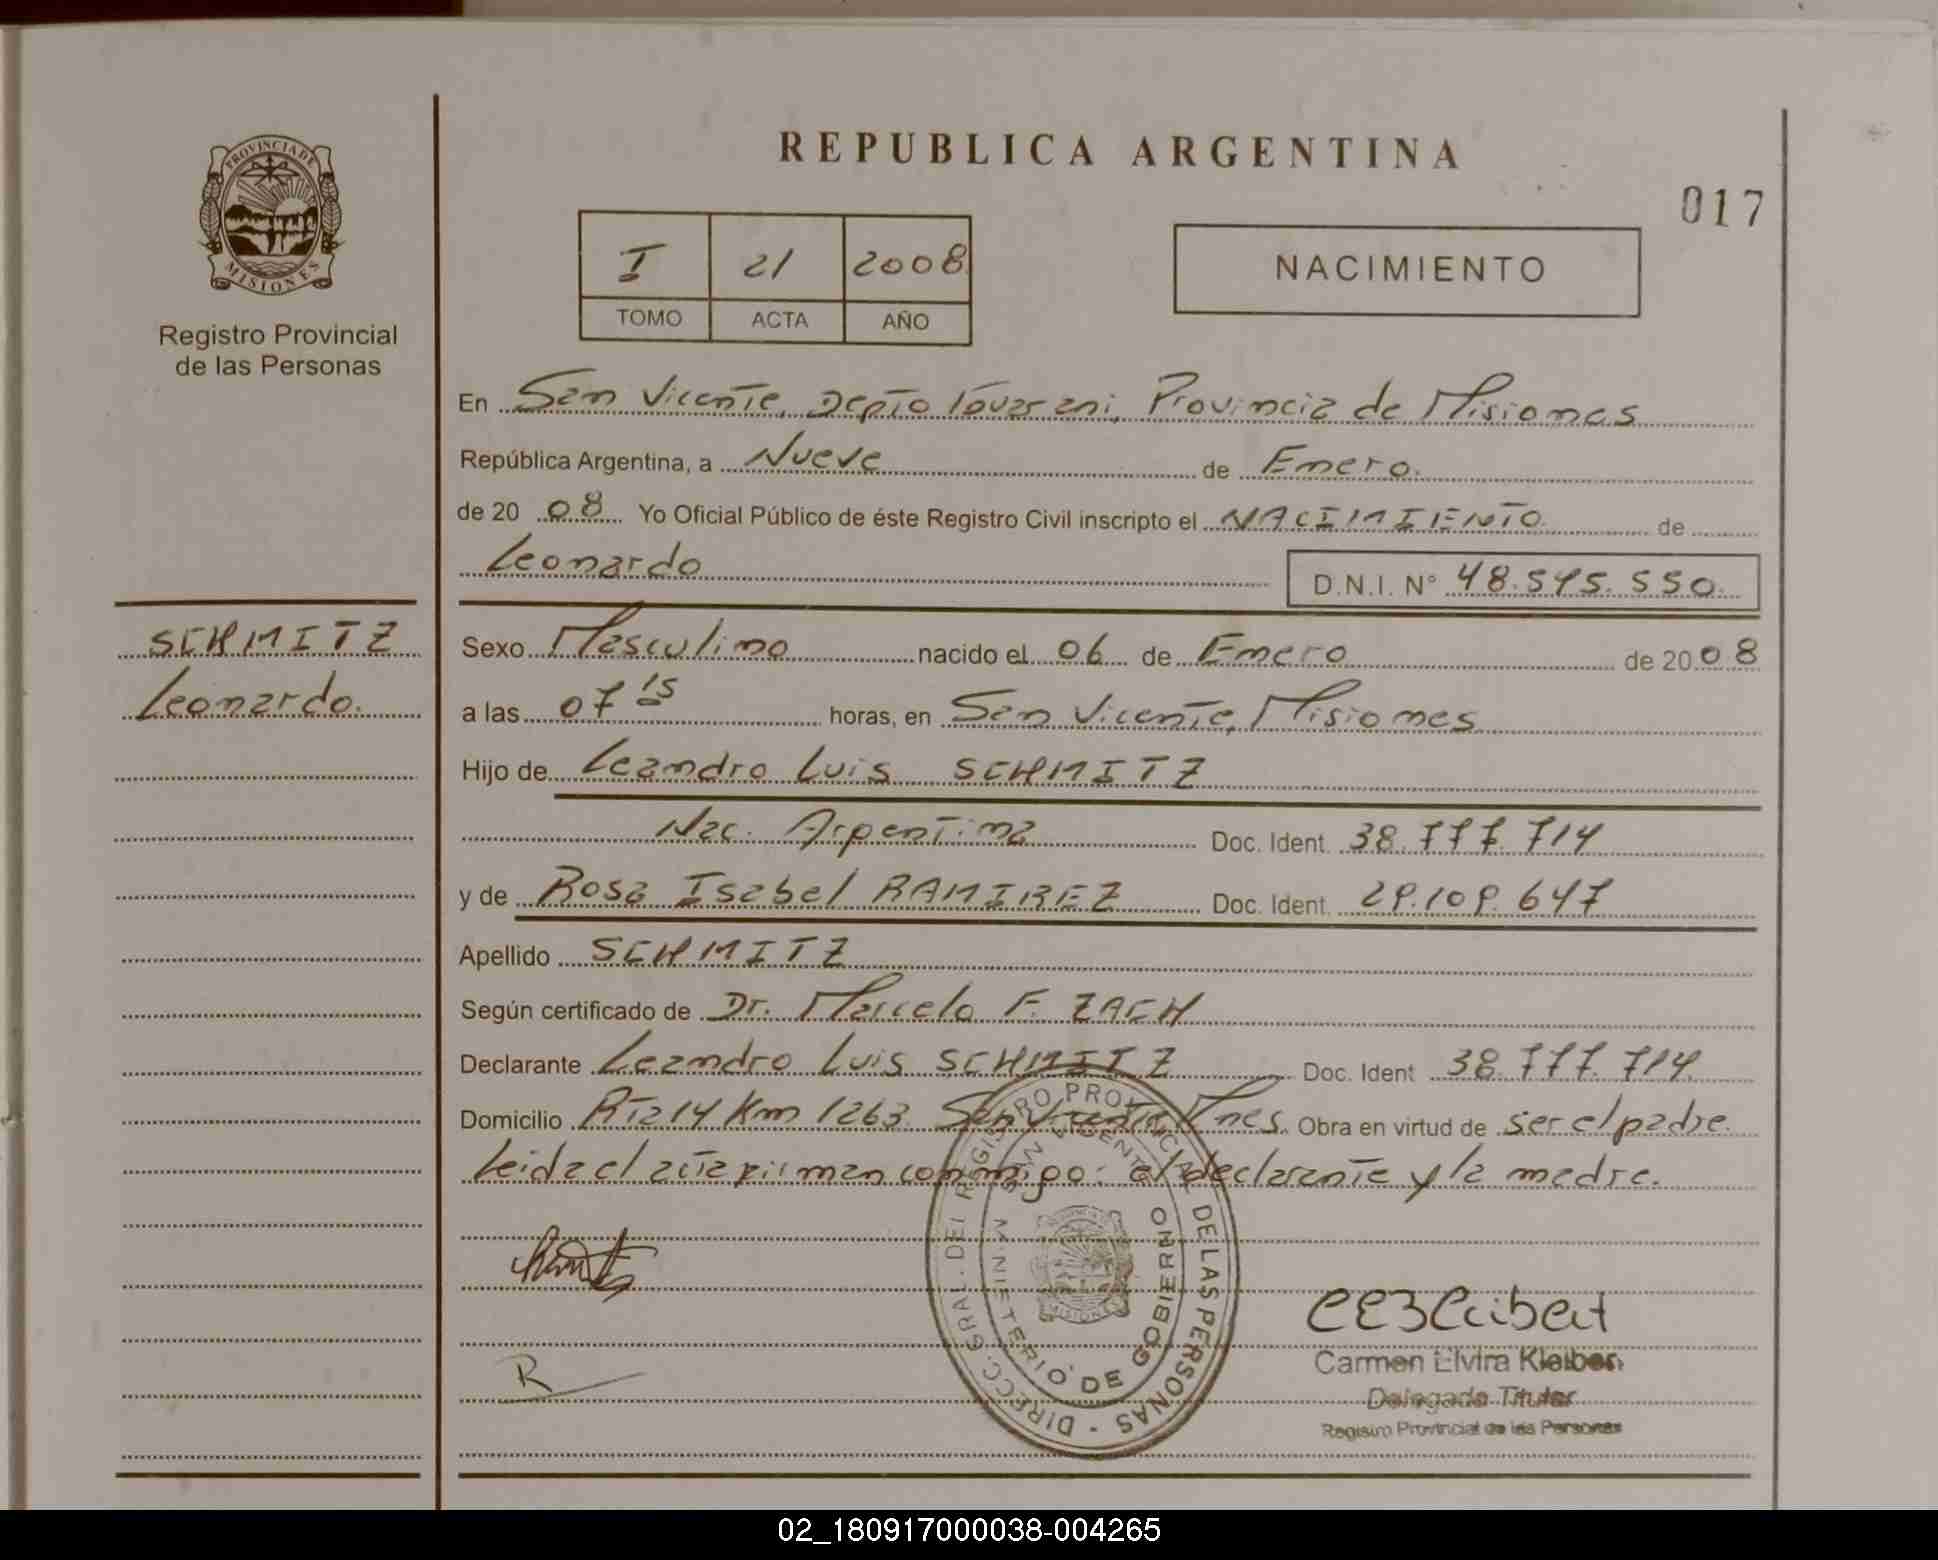 PROVINCIA DE
MISIONES
Registro Provincial
de las Personas
SCHMITZ
Leonardo.
REPUBLICA ARGENTINA
017
I 21 2008
TOMO ACTA AÑO
NACIMIENTO
En San Vicente, Depto Guarani, Provincia de Misiones
República Argentina, a Nueve de Enero.
de 20 08 Yo Oficial Público de éste Registro Civil inscripto el NACIMIENTO de
Leonardo D.N.I. N° 48.595.550.
Sexo Masculino nacido el 06 de Enero de 2008
a las 07 15 horas, en San Vicente, Misiones
Hijo de Leandro Luis SCHMITZ
Nac. Argentina Doc. Ident. 38.777.714
y de Rosa Isabel RAMIREZ Doc. Ident. 29.109.647
Apellido SCHMITZ
Según certificado de Dr. Marcelo F. ZACH
Declarante Leandro Luis SCHMITZ Doc. Ident 38.777.714
Domicilio Rta 14 Km 1263. San Vicente Mnes. Obra en virtud de ser el padre.
Leida el acta firman conmigo: el declarante y la madre.
DIRECC. GRAL. DEL REGISTRO PROVINCIAL DE LAS PERSONAS -
SAN VICENTE
MINISTERIO DE GOBIERNO
MISIONES
R
Carmen Elvira Kleiber
Delegada Titular
Registro Provincial de las Personas
02_180917000038-004265